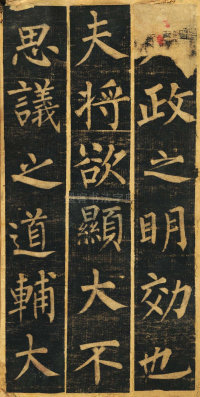 政之明効也
夫将欲顯大不
思議之道輔大